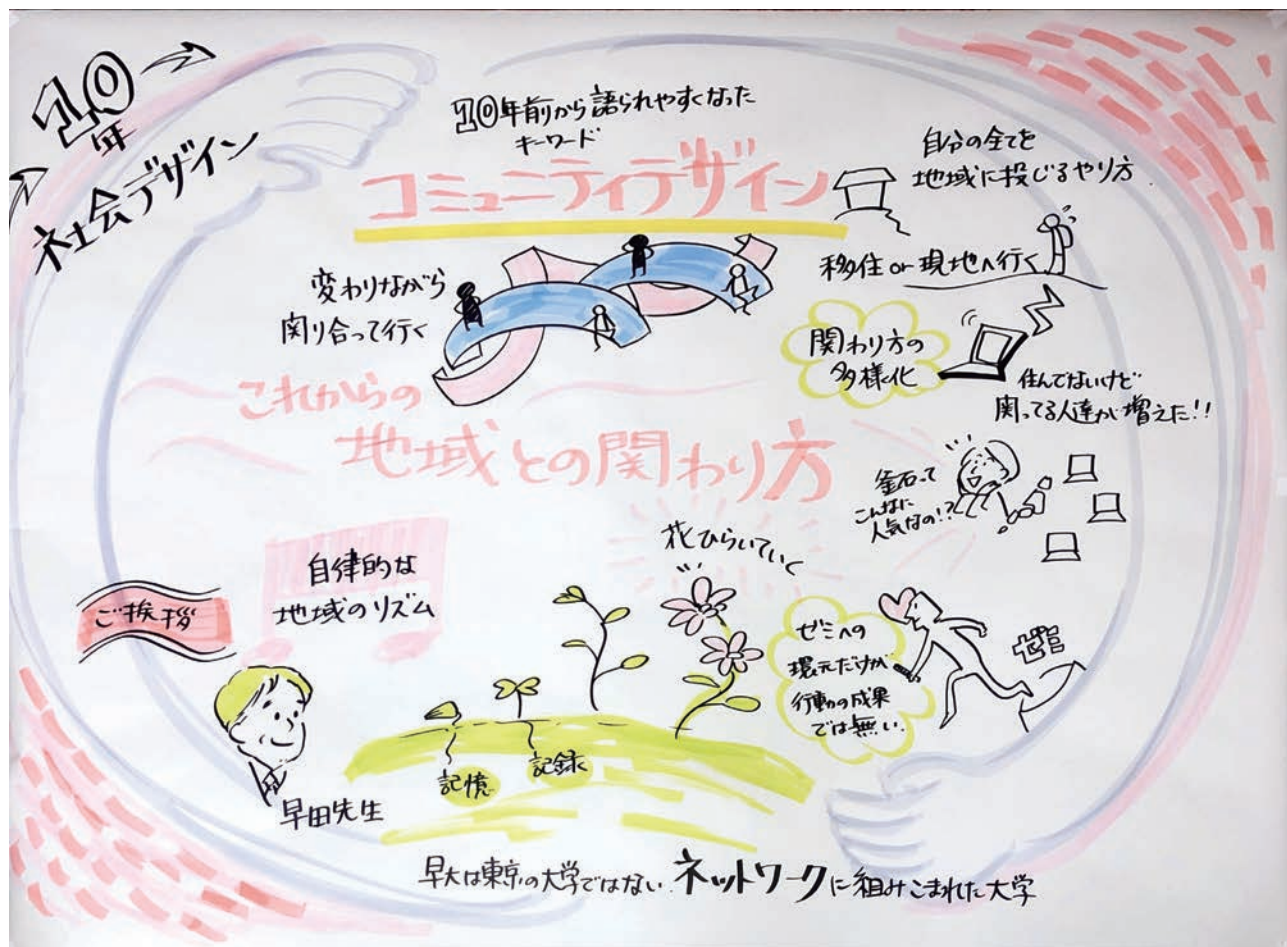 10年
社会デザイン
10年前から語られやすくなった
キーワード
コミュニティデザイン
変わりながら
関り合って行く
自分の全てを
地域に投じるやり方
移住or現地へ行く
関わり方の
多様化
住んでないけど
関ってる人達が増えた!!
これからの
地域との関わり方
釜石って
こんなに
人気なの!?
ご挨拶
自律的な
地域のリズム
花ひらいていく
ゼミへの
還元だけが
行動の成果
では無い.
記憶
記録
早田先生
早大は東京の大学ではない.ネットワークに組みこまれた大学